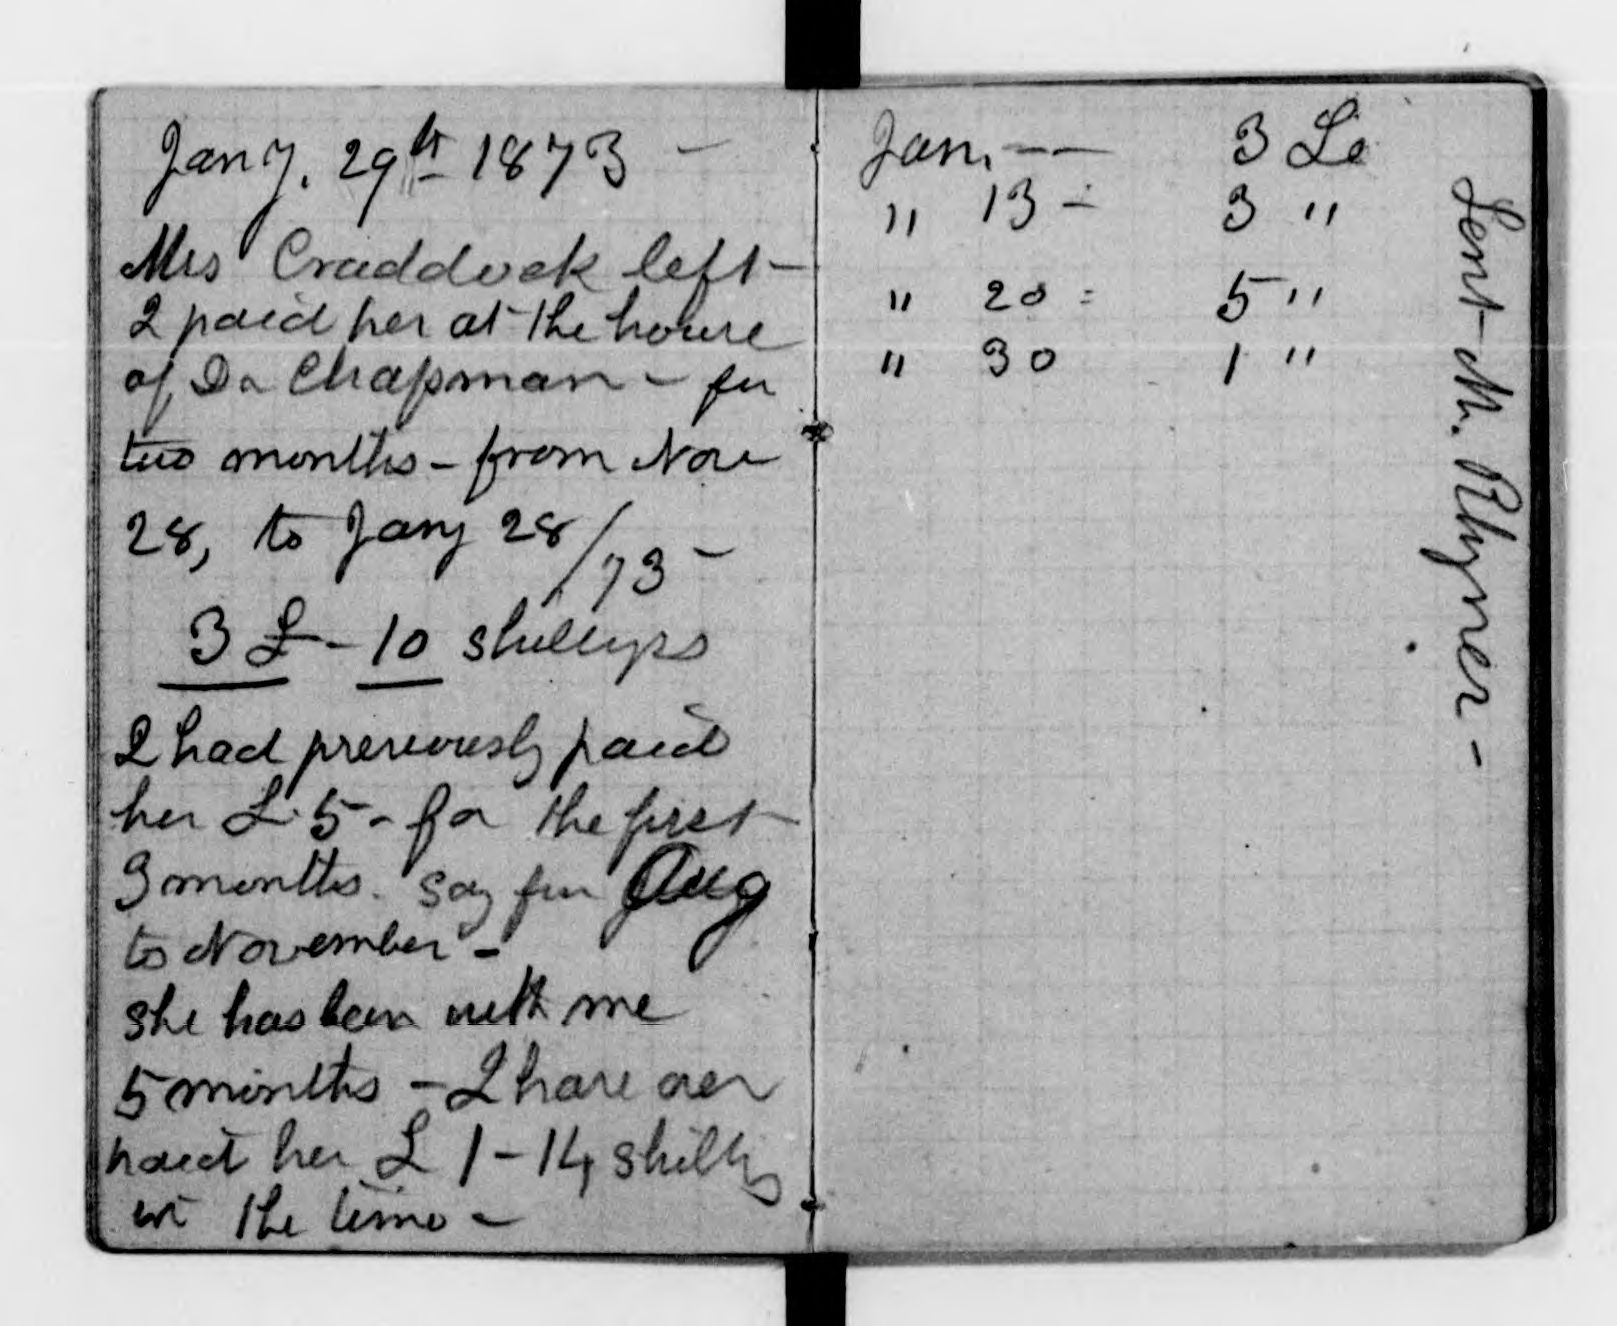 Jany. 29th 1873 –
Mrs Craddock left –
I paid her at the house
of Dr Chapman – for
two months – from Nov
28, to Jany 28/73 –
3 £ – 10 shillings
I had previously paid
her £ 5 – for the first
3 months. Say fm Aug
to November –
she has been with me
5 months – I have over
paid her £ 1 – 14 shillings
in the time –
Jan. — — 3 Ls
" 13 – 3 "
" 20 = 5 "
" 30 1 "
Lent M. Rhyner –